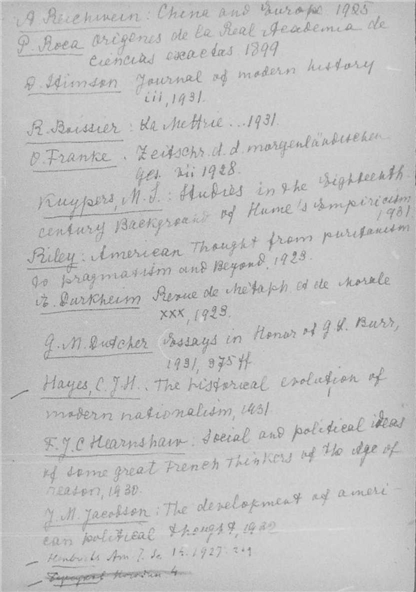 A. Reichwein: China and Europe 1925
P. Roca Origenes de la Real Academia de
Ciencias exactas 1899
D. Stimson Journal of modern history
iii, 1931.
R. Boissier: La Mettrie... 1931
O. Franke. Zeitschr. d. d. morgenländischen
Ges. vii 1928.
Kuypers, M. S.: Studies in the Eighteenth-
century Background of Hume's Empiricism
1931
Riley: American Thought from puritanism
to pragmatism and Beyond, 1923.
E. Durkheim Revue de Métaph. et de Morale
xxx, 1923.
G. M. Dutcher Essays in Honor of G. L. Burr,
1931, 375 ff.
Hayes, C. J. H.. The historical evolution of
modern nationalism, 1931.
F. J. C. Hearnshaw: Social and political ideas
of some great French Thinkers of the Age of
reason, 1930.
J. M. Jacobson: The development of ameri-
can political thought, 1932
Am. J. So. 1927.